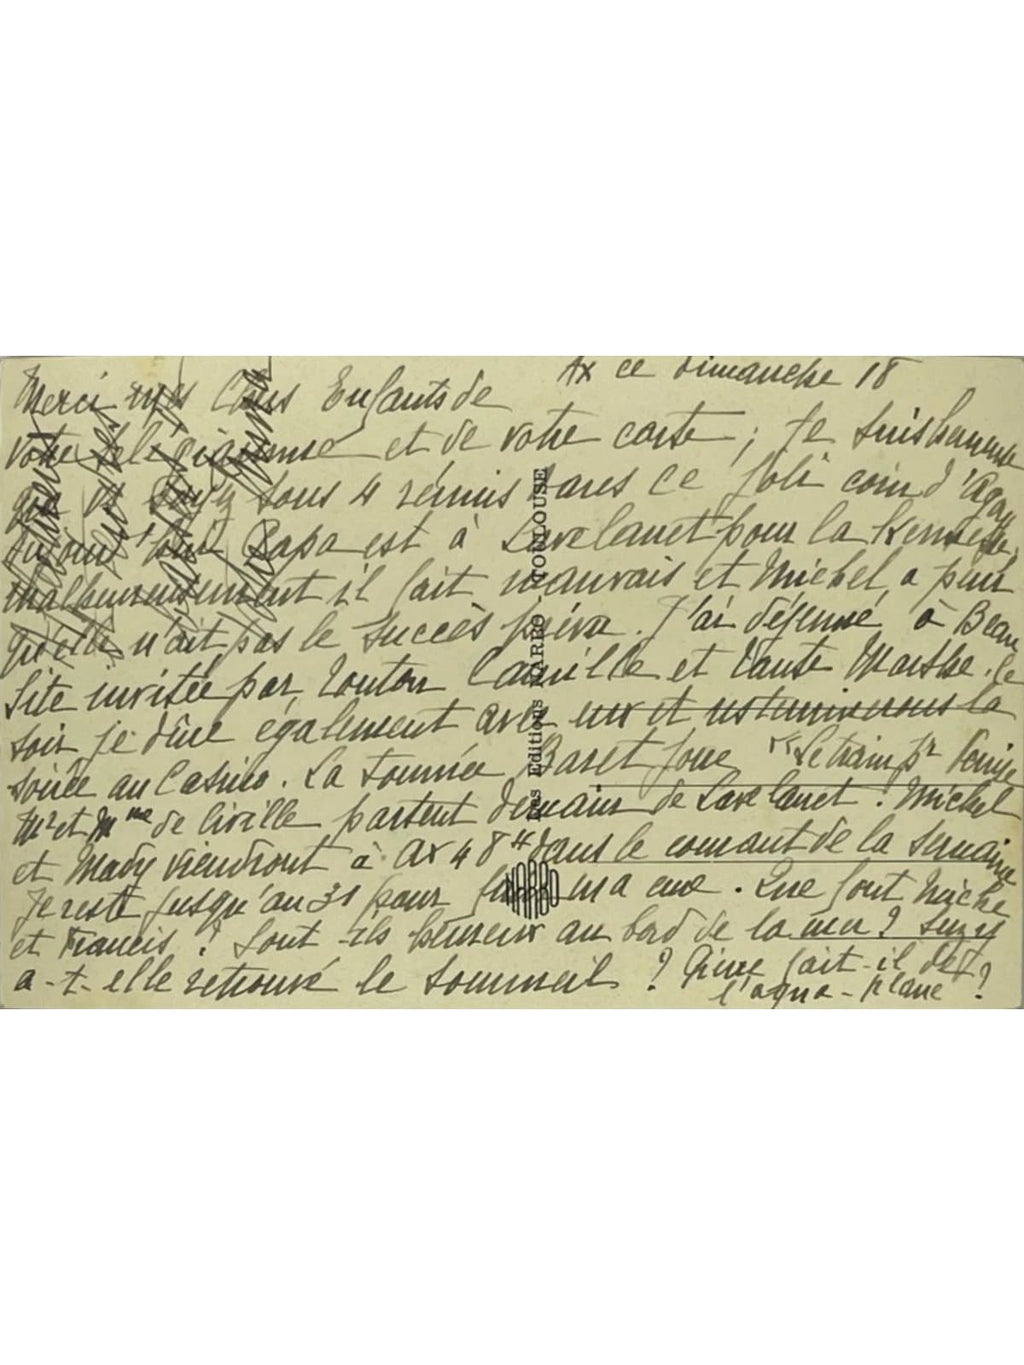 Ax ce Dimanche 18
Merci mes Chers Enfants de
votre télégramme et de votre carte ; Je suis heureuse
que vs soyez tous 4 réunis dans ce joli coin d'Agay
Aujourd'hui Papa est à Lavelanet pour la Kermesse,
malheureusement il fait mauvais et Michel a peur
qu'elle n'ait pas le succès prévu. J'ai déjeuné à Beau
Site invitée par Tonton Camille et Tante Marthe. Ce
soir je dîne également avec eux et ns terminerons la
soirée au Casino. La tournée Baret joue "Le train pr Venise
Mr et Mme de Civille partent demain de Lavelanet. Michel
et Mady viendront à Ax 48 H dans le courant de la semaine
Je reste jusqu'au 31 pour finir ma cure. Que font Miche
et Francis ? Sont-ils heureux au bord de la mer ? Suzy
a-t-elle retrouvé le sommeil ? fait-il de
l'aqua-plane ?
Editions NARBO - TOULOUSE
NARBO